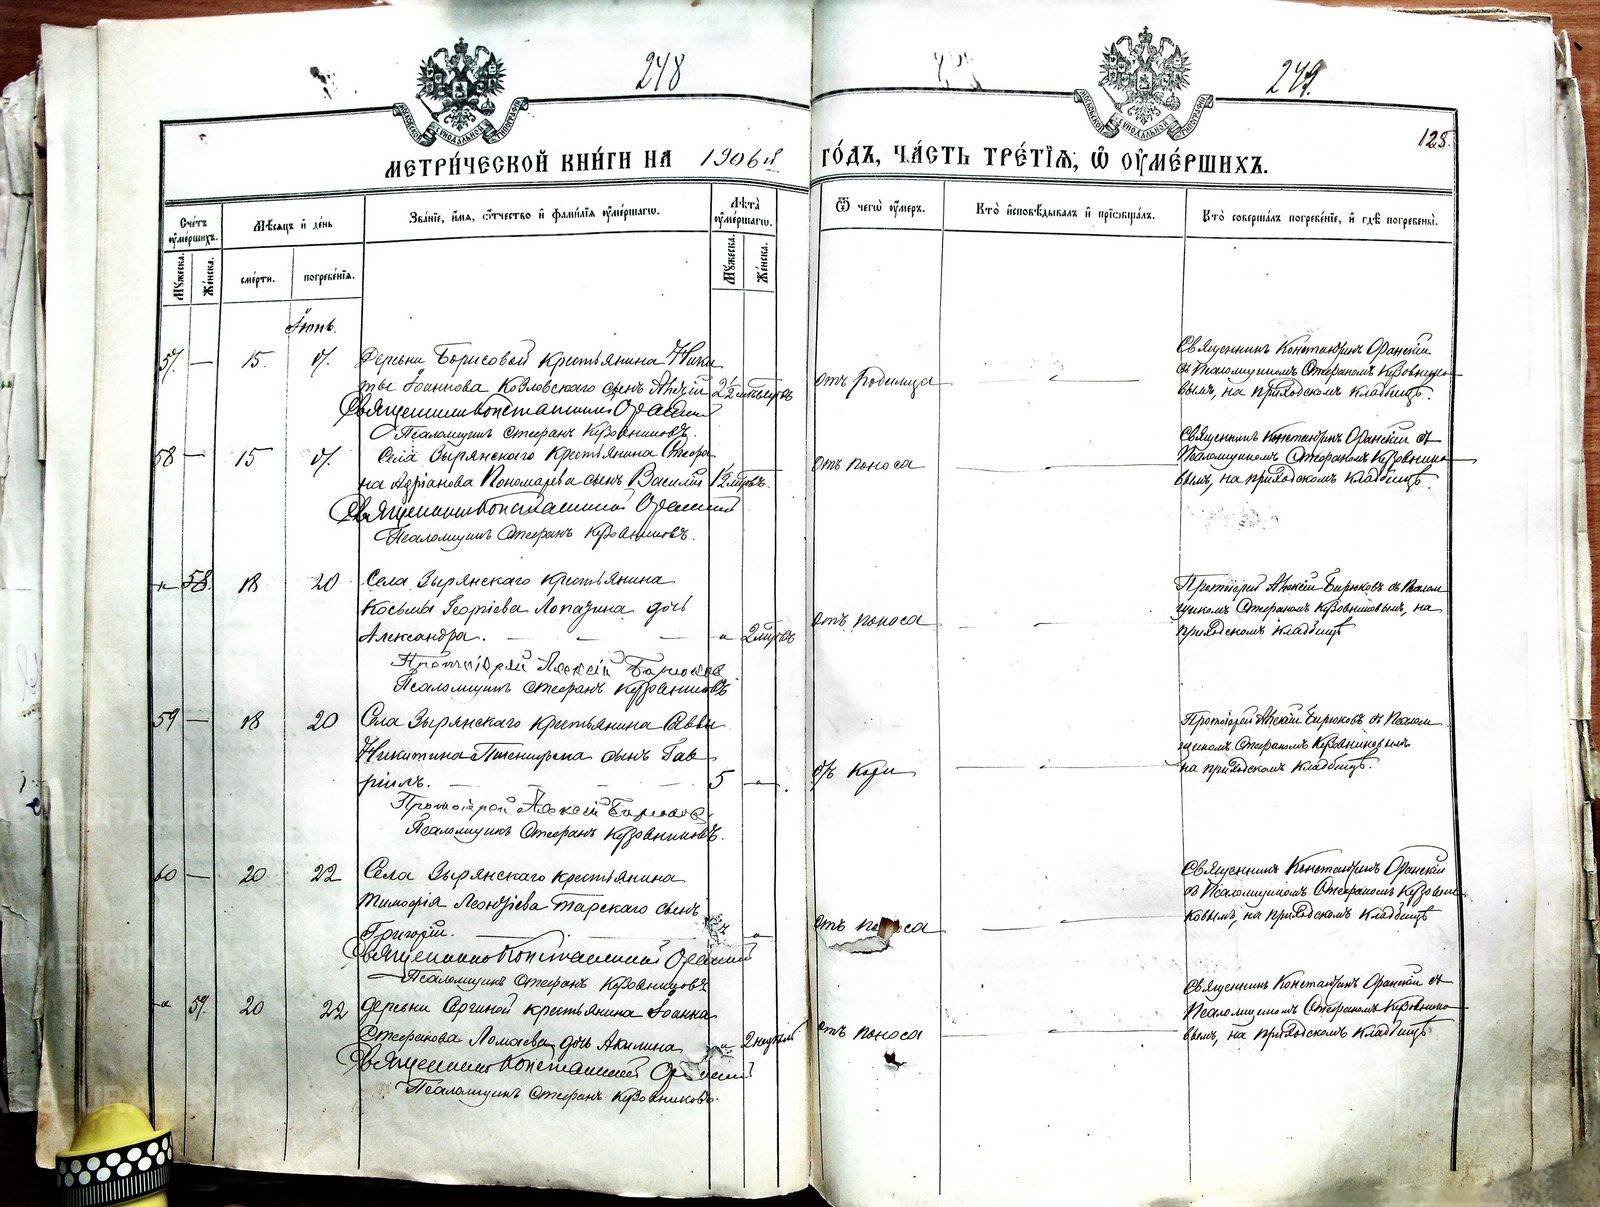 248
249
128.
МЕТРИ́ЧЕСКОЙ КНИ́ГИ НА 1906й ГО́ДЪ, ЧА́СТЬ ТРЕ́ТІѦ, Ѿ ОУМЕ́РШИХЪ.
Счетъ оумершихъ.
Мѣсяцъ и день
Званіе, имя, отчество и фамилія оумершагѡ.
Лѣта оумершагѡ.
Ѿ чегѡ оумеръ.
Кто исповѣдывалъ и пріобщалъ.
Кто совершалъ погребеніе, и гдѣ погребены.
Мужеска.
Женска.
смерти.
погребенія.
Мужеска.
Женска.
Іюнь.
57. — 15. 17. Деревни Борисовой крестьянина Ники
ты Іоаннова Козловскаго сынъ 2½
Священникъ Константинъ Оранскій
Псаломщикъ Стефанъ Кузовниковъ.
отъ родимца
Священникъ Константинъ Оранскій
съ Псаломщикомъ Стефаномъ Кузовнико
вымъ, на приходскомъ кладбищѣ.
58 — 15 17. Села Зырянскаго крестьянина Стефа
на Адріанова Пономарева сынъ Василій 1½
Священникъ Константинъ Оранскій
Псаломщикъ Стефанъ Кузовниковъ.
отъ поноса
Священникъ Константинъ Оранскій съ
Псаломщикомъ Стефаномъ Кузовнико
вымъ, на приходскомъ кладбищѣ.
58. 18 20 Села Зырянскаго крестьянина
Косьмы Георгіева Лопазина дочь
Александра. — — — „ 2
Протоіерей Алексій Бирюковъ
Псаломщикъ Стефанъ Кузовниковъ
отъ поноса
Протоіерей Алексій Бирюковъ съ Псалом
щикомъ Стефаномъ Кузовниковымъ, на
приходскомъ кладбищѣ
59 — 18 20 Села Зырянскаго крестьянина Саввы
Никитина сынъ Гав
ріилъ. — — — 5 „
Протоіерей Алексій Бирюковъ
Псаломщикъ Стефанъ Кузовниковъ.
отъ кори
Протоіерей Алексій Бирюковъ съ Псалом
щикомъ Стефаномъ Кузовниковымъ
на приходскомъ кладбищѣ.
60 — 20 22 Села Зырянскаго крестьянина
Тимофія Леонтіева Тарскаго сынъ
Григорій. — „
Священникъ Константинъ Оранскій
Псаломщикъ Стефанъ Кузовниковъ
отъ поноса
Священникъ Константинъ Оранскій
съ Псаломщикомъ Стефаномъ Кузовни
ковымъ, на приходскомъ кладбищѣ
„ 59. 20 22 Деревни крестьянина Іоанна
Стефанова Ломаева дочь Акилина „ 2 недѣли
Священникъ Константинъ Оранскій
Псаломщикъ Стефанъ Кузовниковъ.
отъ поноса
Священникъ Константинъ Оранскій съ
Псаломщикомъ Стефаномъ Кузовнико
вымъ, на приходскомъ кладбищѣ